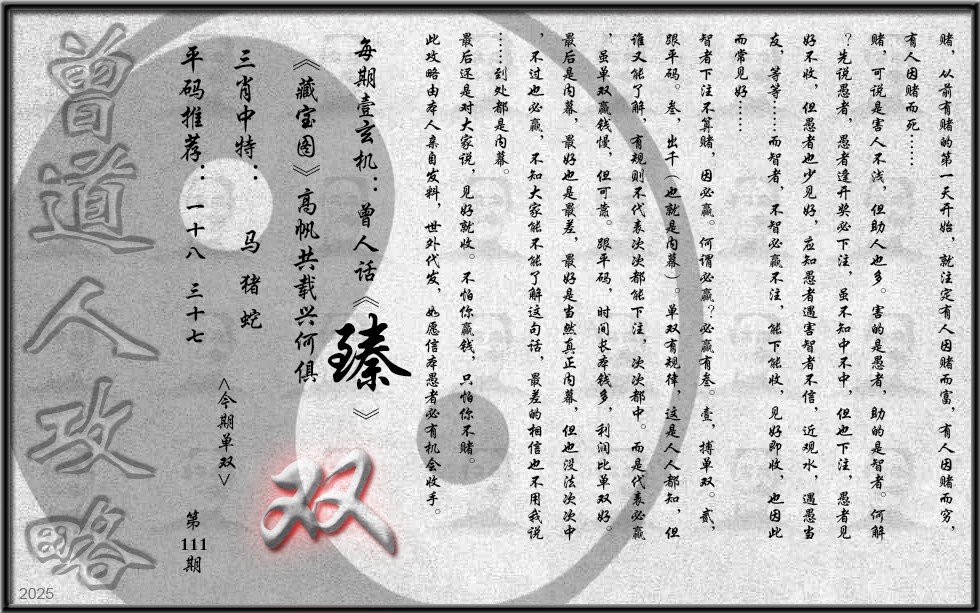 赌，从前有赌的第一天开始，就注定有人因赌而富，有人因赌而穷，
有人因赌而死……
赌，可说是害人不浅，但助人也多。害的是愚者，助的是智者。何解
？先说愚者，愚者逢开奖必下注，虽不知中不中，但也下注，愚者见
好不收，但愚者也少见好，应知愚者遇害智者不信，近观水，遇愚当
友，等等……而智者，不智必赢不注，能下能收，见好即收，也因此
而常见好……
智者下注不算赌，因必赢。何谓必赢？必赢有叁。壹，搏单双。贰，
跟平码。叁，出千（也就是内幕）。单双有规律，这是人人都知，但
谁又能了解，有规则不代表次次都能下注，次次都中。而是代表必赢
，虽单双赢钱慢，但可靠。跟平码，时间长本钱多，利润比单双好。
最后是内幕，最好也是最差，最好是当然真正内幕，但也没法次次中
，不过也必赢，不知大家能不能了解这句话，最差的相信也不用我说
……到处都是内幕。
最后还是对大家说，见好就收。不怕你赢钱，只怕你不赌。
此攻略由本人亲自发料，世外代发，如愿信本愚者必有机会收手。
每期壹玄机：曾人话《臻》
《藏宝图》高帆共载兴何俱
三肖中特：马 猪 蛇
平码推荐：一十八 三十七
<今期单双>
双
第111期
曾道人攻略
2025